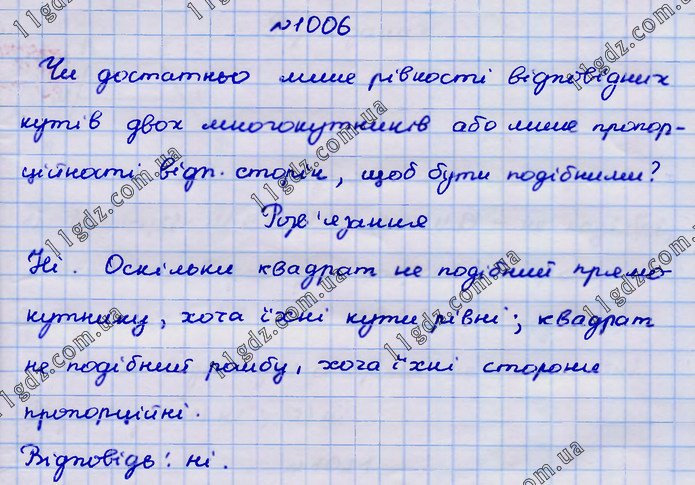 №1006
Чи достатньо лише рівності відповідних
кутів двох многокутників або лише пропор-
ційності відп. сторін, щоб бути подібними?
Розв'язання
Ні. Оскільки квадрат не подібний прямо-
кутнику, хоча їхні кути рівні; квадрат
не подібний ромбу, хоча їхні сторони
пропорційні.
Відповідь: ні.
11gdz.com.ua
11gdz.com.ua
11gdz.com.ua
11gdz.com.ua
11gdz.com.ua
11gdz.com.ua
11gdz.com.ua
11gdz.com.ua
11gdz.com.ua
11gdz.com.ua